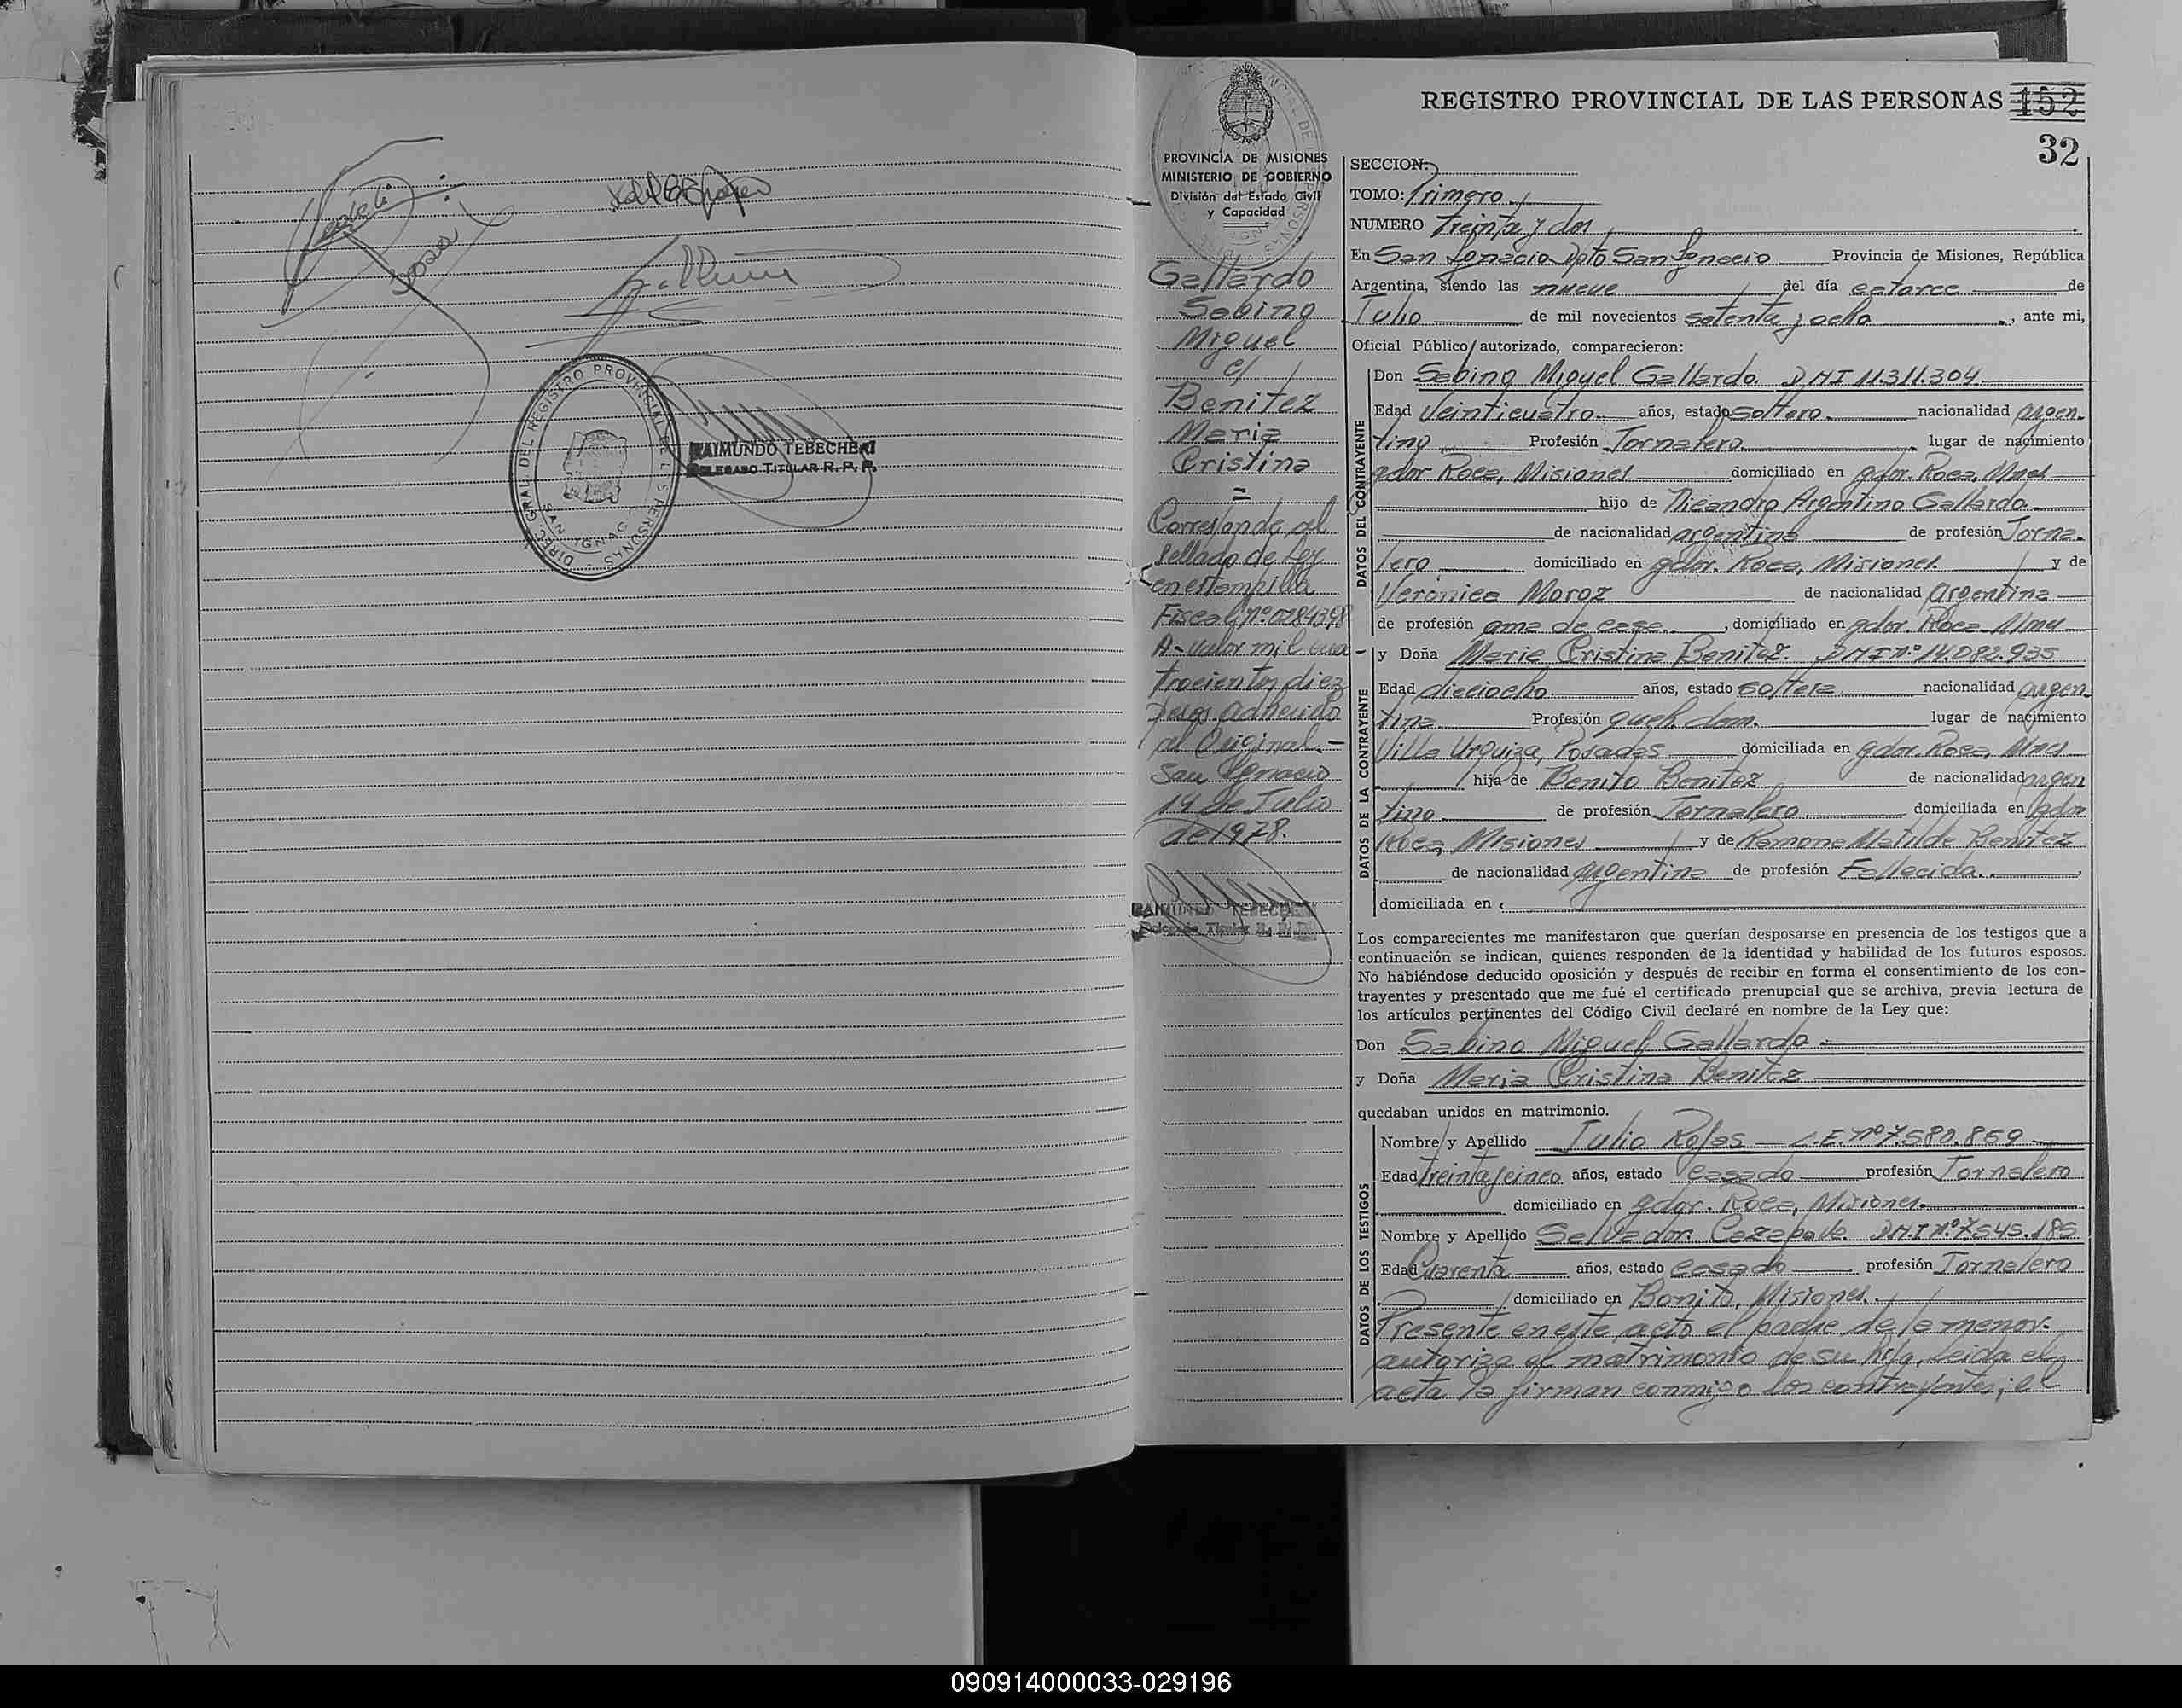 RAIMUNDO TEBECHERI
DELEGADO TITULAR R. P. P.
DIREC. GRAL. DEL REGISTRO PROVINCIAL DE LAS PERSONAS
SAN IGNACIO
REGISTRO PROVINCIAL DE LAS PERSONAS 152
32
PROVINCIA DE MISIONES
MINISTERIO DE GOBIERNO
División del Estado Civil
y Capacidad
Gallardo
Sabino
Miguel
c/
Benitez
Maria
Cristina
=
Corresponde al
sellado de Ley
en estampilla
Fiscal nº
A- valor mil cua-
trocientos diez
pesos adherido
al Original.-
San Ignacio
14 de Julio
de 1978.
RAIMUNDO TEBECHERI
Delegado Titular R. P. P.
SECCION:
TOMO: Primero.
NUMERO Treinta y dos
En San Ignacio Dpto San Ignacio Provincia de Misiones, República
Argentina, siendo las nueve del día catorce de
Julio de mil novecientos setenta y ocho, ante mi,
Oficial Público autorizado, comparecieron:
DATOS DEL CONTRAYENTE
Don Sabino Miguel Gallardo. DNI 11.311.304
Edad Veinticuatro años, estado soltero. nacionalidad argen-
tino Profesión Jornalero. lugar de nacimiento
gdor Roca, Misiones domiciliado en gdor. Roca, Mnes
hijo de Nicandro Argentino Gallardo
de nacionalidad argentina de profesión Jorna-
lero domiciliado en gdor. Roca, Misiones. y de
Veronica Moroz de nacionalidad argentina
de profesión ama de casa. , domiciliado en gdor. Roca Mnes
DATOS DE LA CONTRAYENTE
y Doña Maria Cristina Benitez. DNI nº 14.082.935
Edad dieciocho años, estado soltera nacionalidad argen-
tina Profesión queh. dom. lugar de nacimiento
Villa Urquiza, Posadas domiciliada en gdor. Roca, Mnes
hija de Benito Benitez de nacionalidad argen
tino de profesión Jornalero. domiciliada en gdor
Roca, Misiones y de Ramona Matilde Benitez
de nacionalidad argentina de profesión Fallecida.
domiciliada en
Los comparecientes me manifestaron que querían desposarse en presencia de los testigos que a
continuación se indican, quienes responden de la identidad y habilidad de los futuros esposos.
No habiéndose deducido oposición y después de recibir en forma el consentimiento de los con-
trayentes y presentado que me fué el certificado prenupcial que se archiva, previa lectura de
los artículos pertinentes del Código Civil declaré en nombre de la Ley que:
Don Sabino Miguel Gallardo
y Doña Maria Cristina Benitez
quedaban unidos en matrimonio.
DATOS DE LOS TESTIGOS
Nombre y Apellido Julio Rojas L.E. nº 7.580.859
Edad treinta y cinco años, estado casado profesión Jornalero
domiciliado en gdor. Roca, Misiones.
Nombre y Apellido Salvador Cazapava. DNI nº 7.545.185
Edad Cuarenta años, estado casado profesión Jornalero
domiciliado en Bonito, Misiones.
Presente en este acto el padre de la menor.
autoriza al matrimonio de su hija. Leida el
acta la firman conmigo los contrayentes, el
090914000033-029196